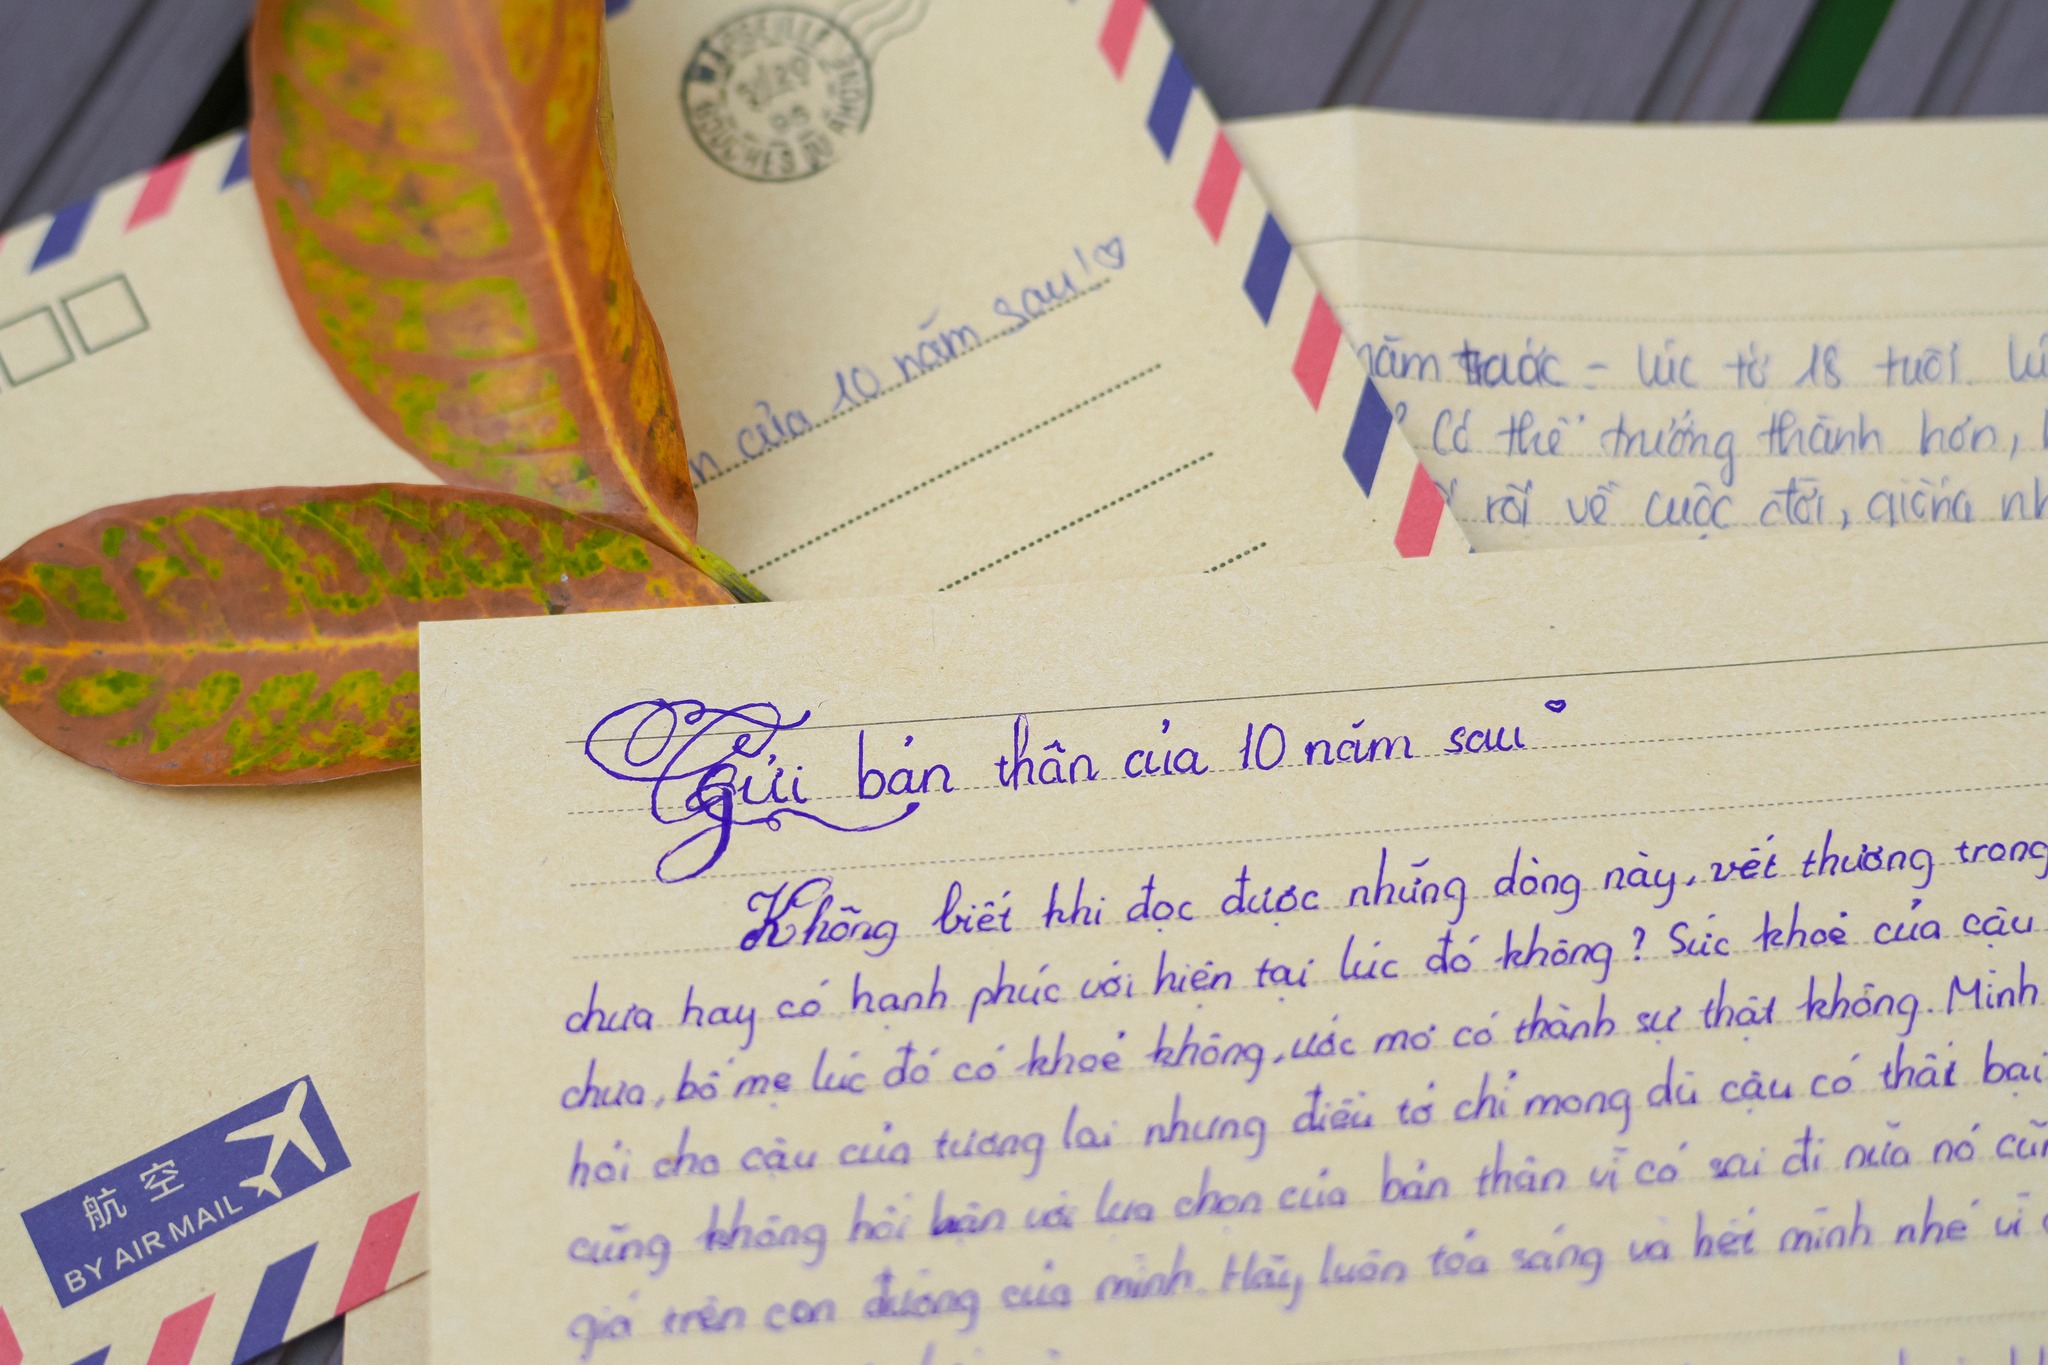 MARSEILLE
BOUCHES DU RHÔNE
của 10 năm sau!
năm trước - lúc tớ 18 tuổi.
Có thể trưởng thành hơn,
rồi về cuộc đời, giống
Gửi bản thân của 10 năm sau
Không biết khi đọc được những dòng này, vết thương trong
chưa hay có hạnh phúc với hiện tại lúc đó không? Sức khoẻ của cậu
chưa, bố mẹ lúc đó có khoẻ không, ước mơ có thành sự thật không. Mình
hỏi cho cậu của tương lai nhưng điều tớ chỉ mong dù cậu có thất bại
cũng không hối hận với lựa chọn của bản thân vì có sai đi nữa nó
giá trên con đường của mình. Hãy luôn toả sáng và hết mình nhé vì
航空
BY AIR MAIL